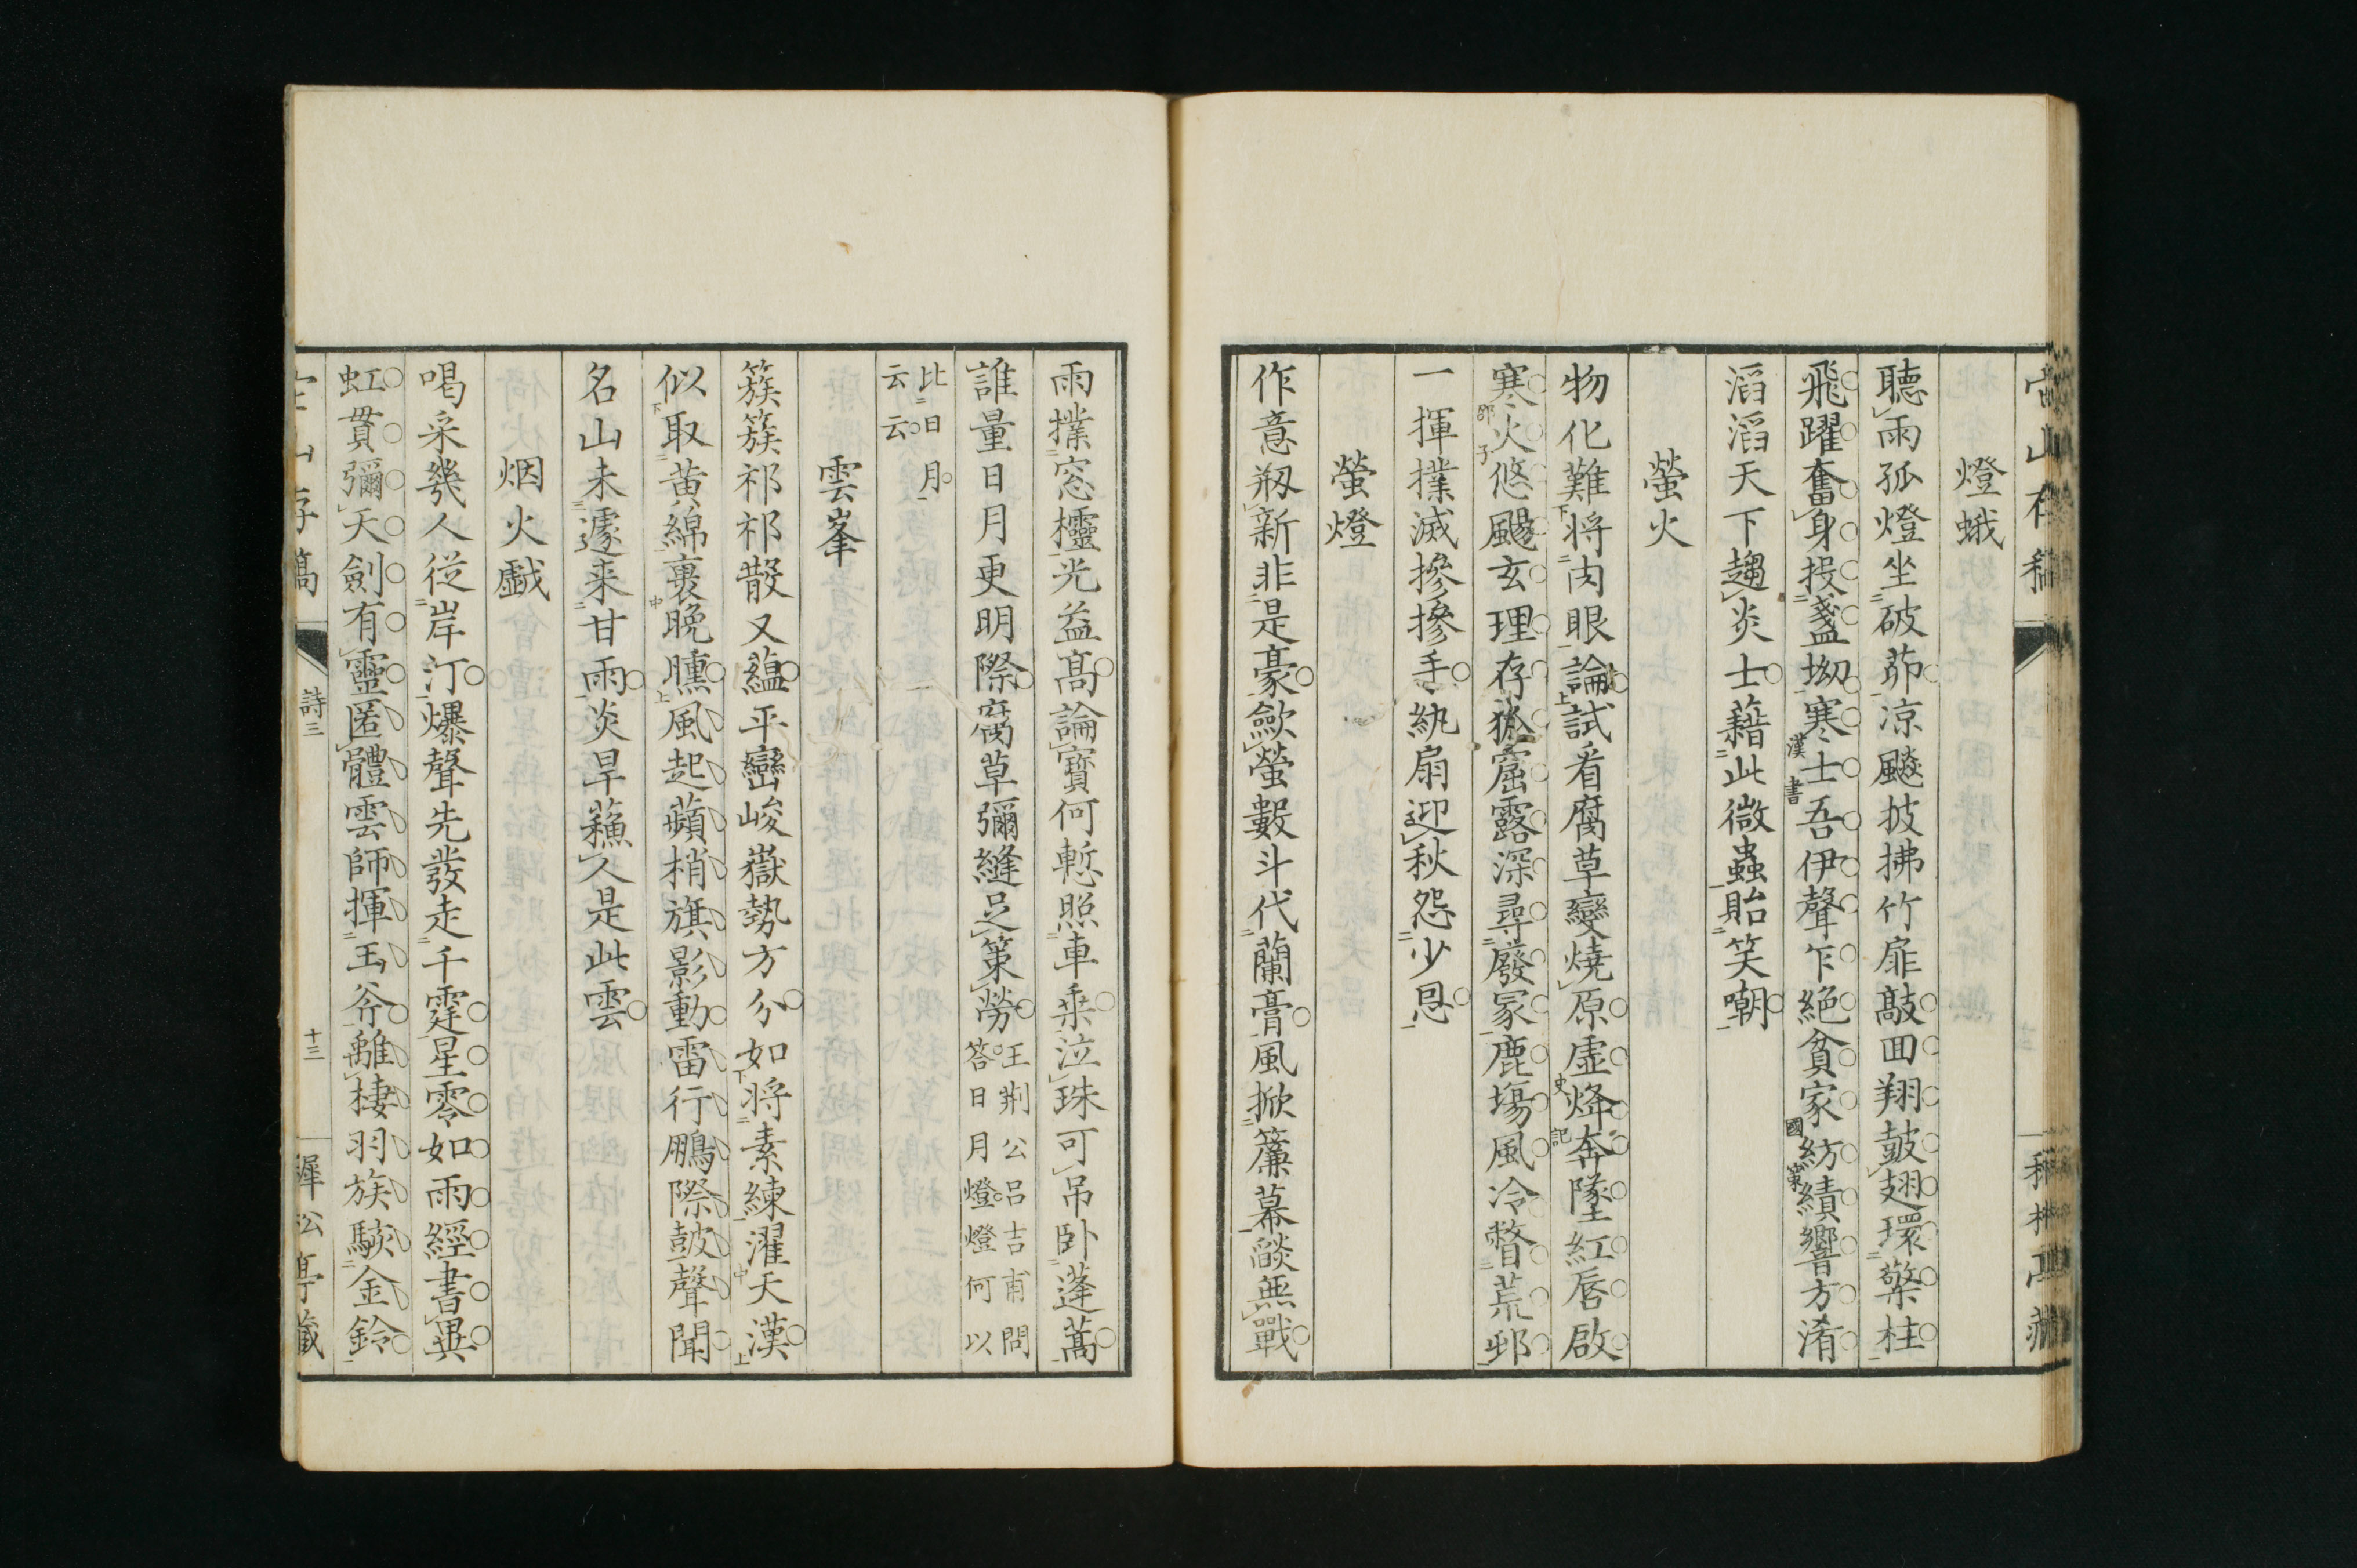 燈蛾
聽雨孤燈坐破茆涼颷披拂竹扉敲回翔鼓翅環檠柱
飛躍奮身投盞坳寒士吾伊聲乍絕貧家紡績響方淆
漢書
國策
滔滔天下趨炎士藉此微蟲貽笑嘲
螢火
物化難將肉眼論試看腐草變燒原虛烽奔墜紅唇啟
史記
寒火悠颺玄理存狐窟露深尋廢冢鹿場風冷瞥荒邨
郎子
一揮撲滅摻摻手紈扇迎秋怨少恩
螢燈
作意剏新非是豪歛螢數斗代蘭膏風掀簾幕燄無戰
雨撲窓櫺光益高論寶何慙照車乗泣珠可吊卧蓬蒿
誰量日月更明際腐草彌縫足策勞
王荆公呂吉甫問
答日月燈燈何以
比日月
云云
雲峯
簇簇祁祁散又蘊平巒峻嶽勢方分如將素練濯天漢
似取黃綿裹晚曛風起蘋梢旗影動雷行鵬際鼓聲聞
名山未遽来甘雨炎旱蘓人是此雲
烟火戯
喝采幾人從岸汀爆聲先發走千霆星零如雨經書異
虹貫彌天劍有靈匿體雲師揮玉斧離棲羽族駭金鈴
詩三
十三